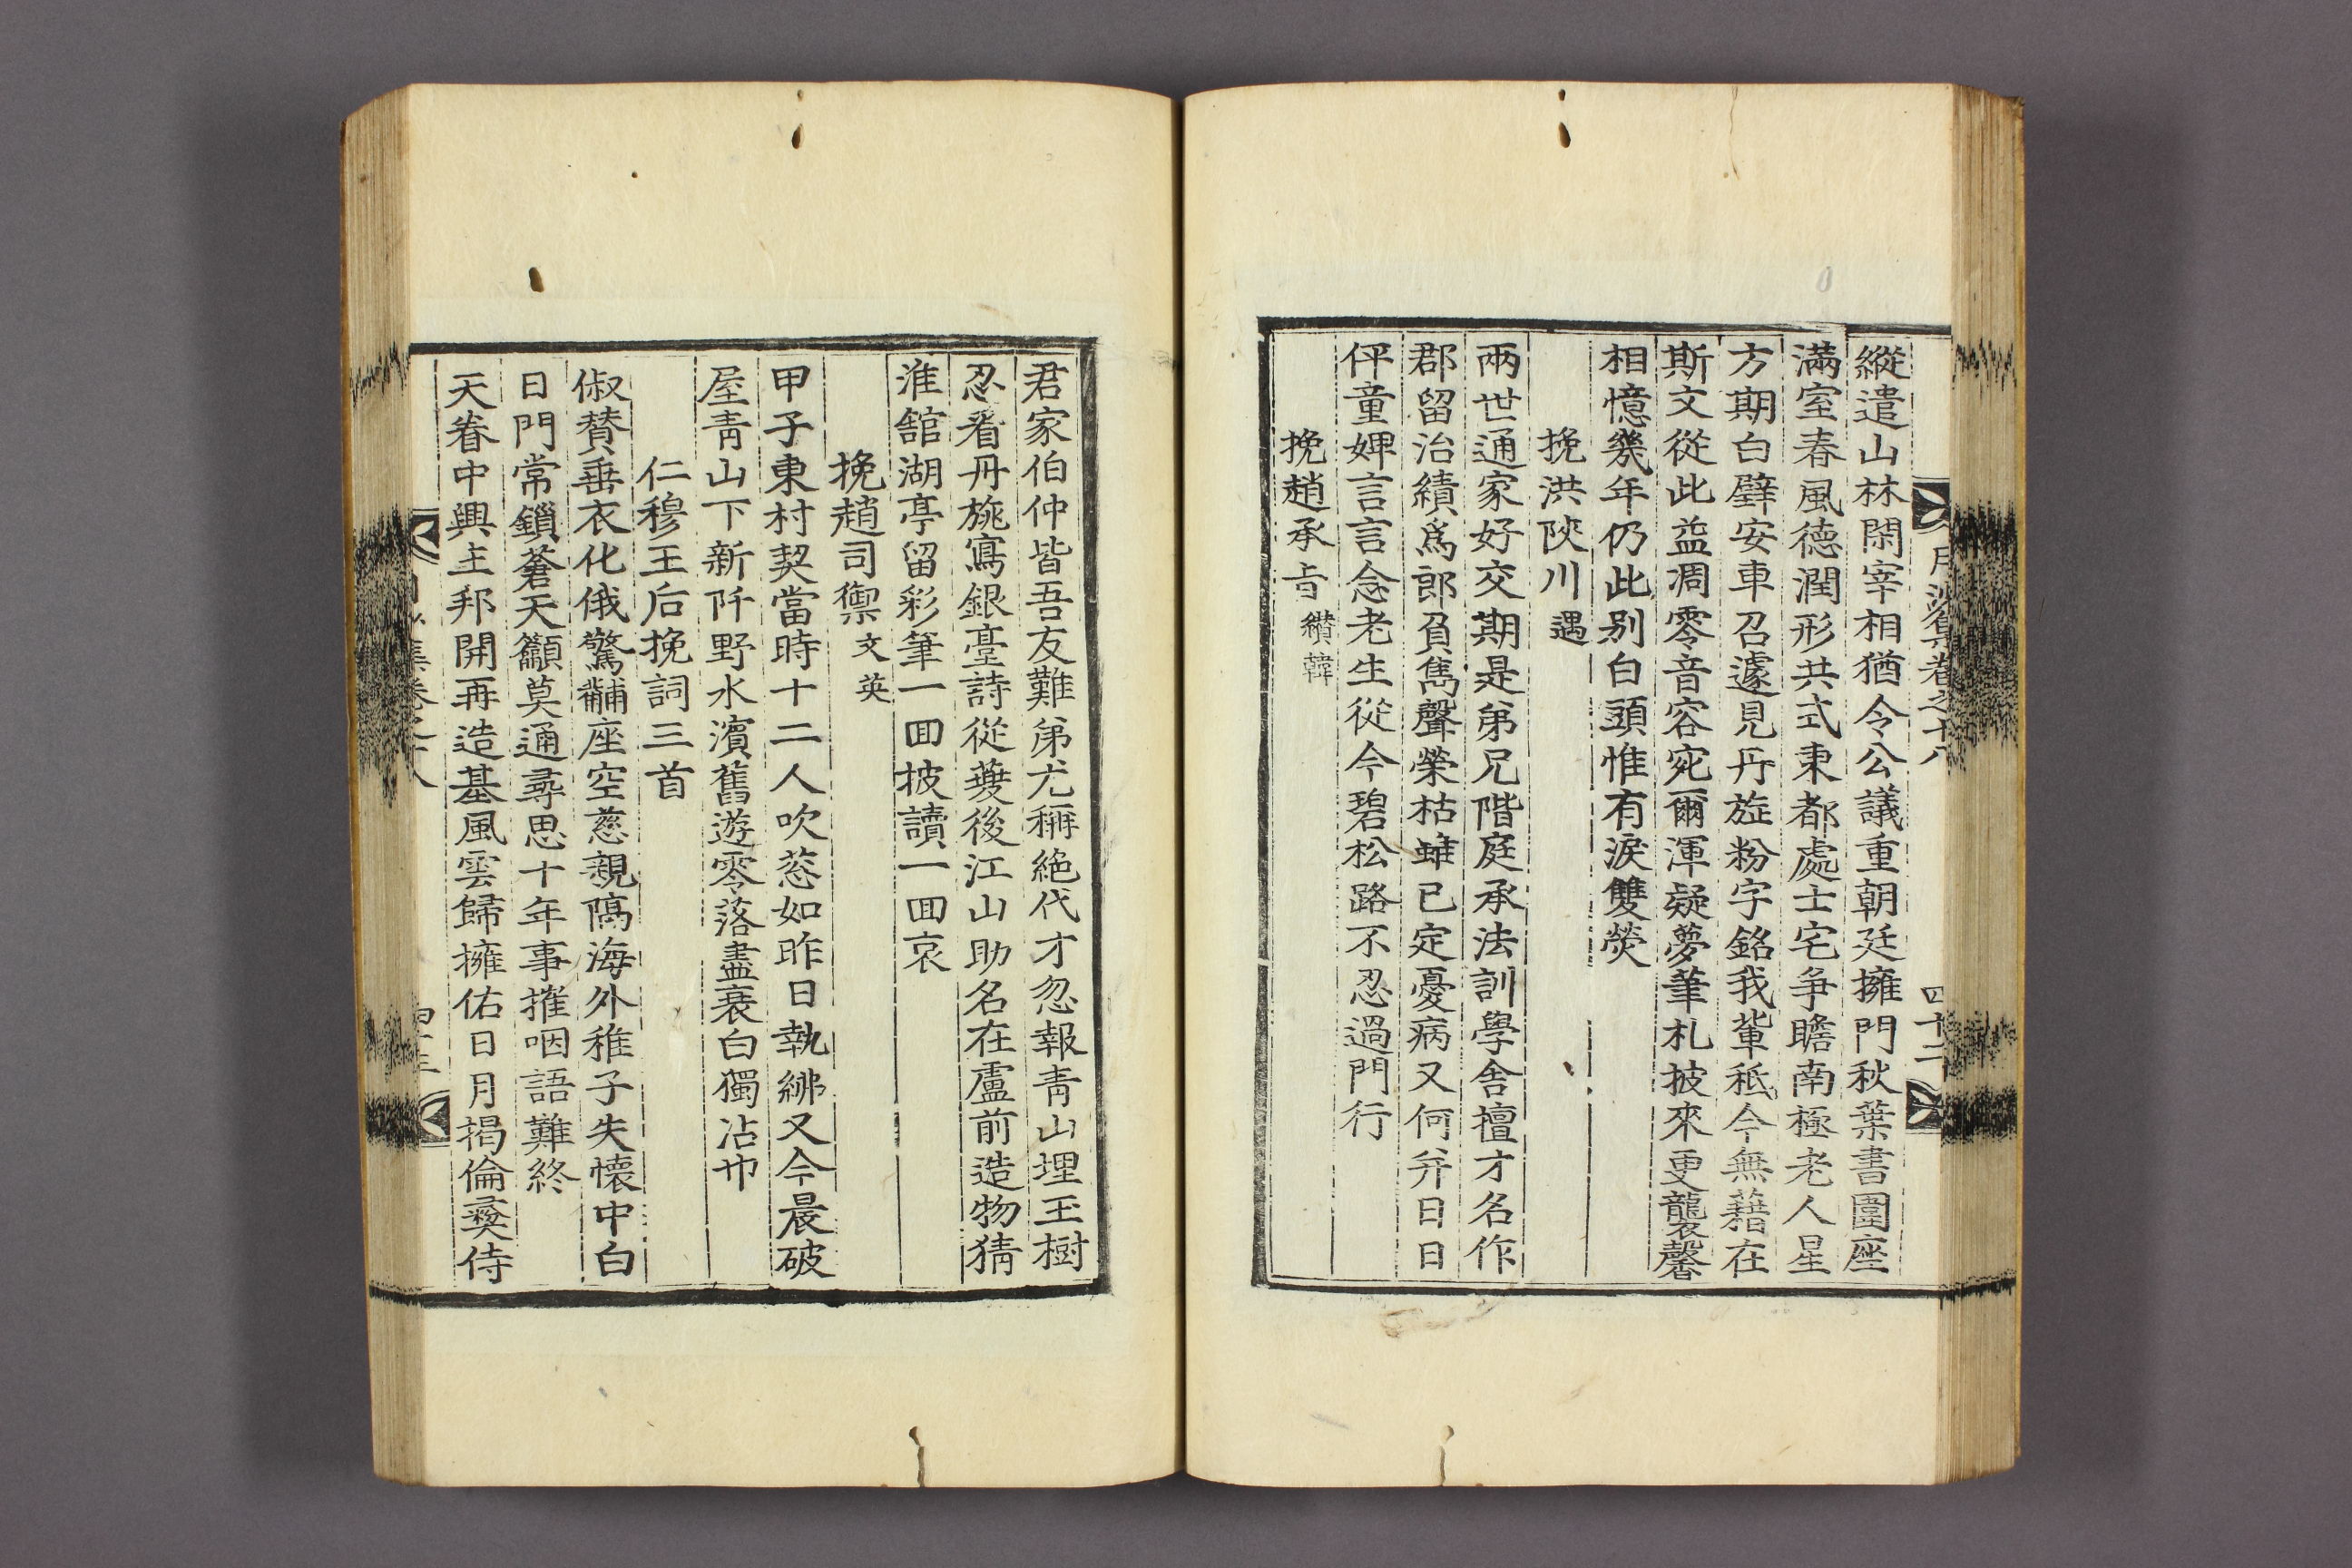 月沙集卷之十八
四十二
縱遣山林閑宰相猶令公議重朝廷擁門秋葉書圍座
滿室春風德潤形共式東都處士宅爭瞻南極老人星
方期白璧安車召遽見丹旌粉字銘我輩秪今無藉在
斯文從此益凋零音容宛爾渾疑夢筆札披來更襲馨
相憶幾年仍此别白頭惟有淚雙熒
挽洪陜川遇
兩世通家好交期是弟兄階庭承法訓學舍擅才名作
郡留治績爲郎負雋聲榮枯雖已定憂病又何并日日
伻童婢言言念老生從今碧松路不忍過門行
挽趙承旨纘韓
君家伯仲皆吾友難弟尤稱絶代才忽報靑山埋玉樹
忍看丹旐寫銀臺詩從夔後江山助名在盧前造物猜
淮舘湖亭留彩筆一回披讀一回哀
挽趙司禦文英
甲子東村契當時十二人吹葱如昨日執紼又今晨破
屋靑山下新阡野水濱舊遊零落盡衰白獨沾巾
仁穆王后挽詞三首
俶賛垂衣化俄驚黼座空慈親隔海外稚子失懷中白
日門常鎻蒼天籲莫通尋思十年事摧咽語難終
天眷中興主邦開再造基風雲歸擁佑日月揭倫彛侍